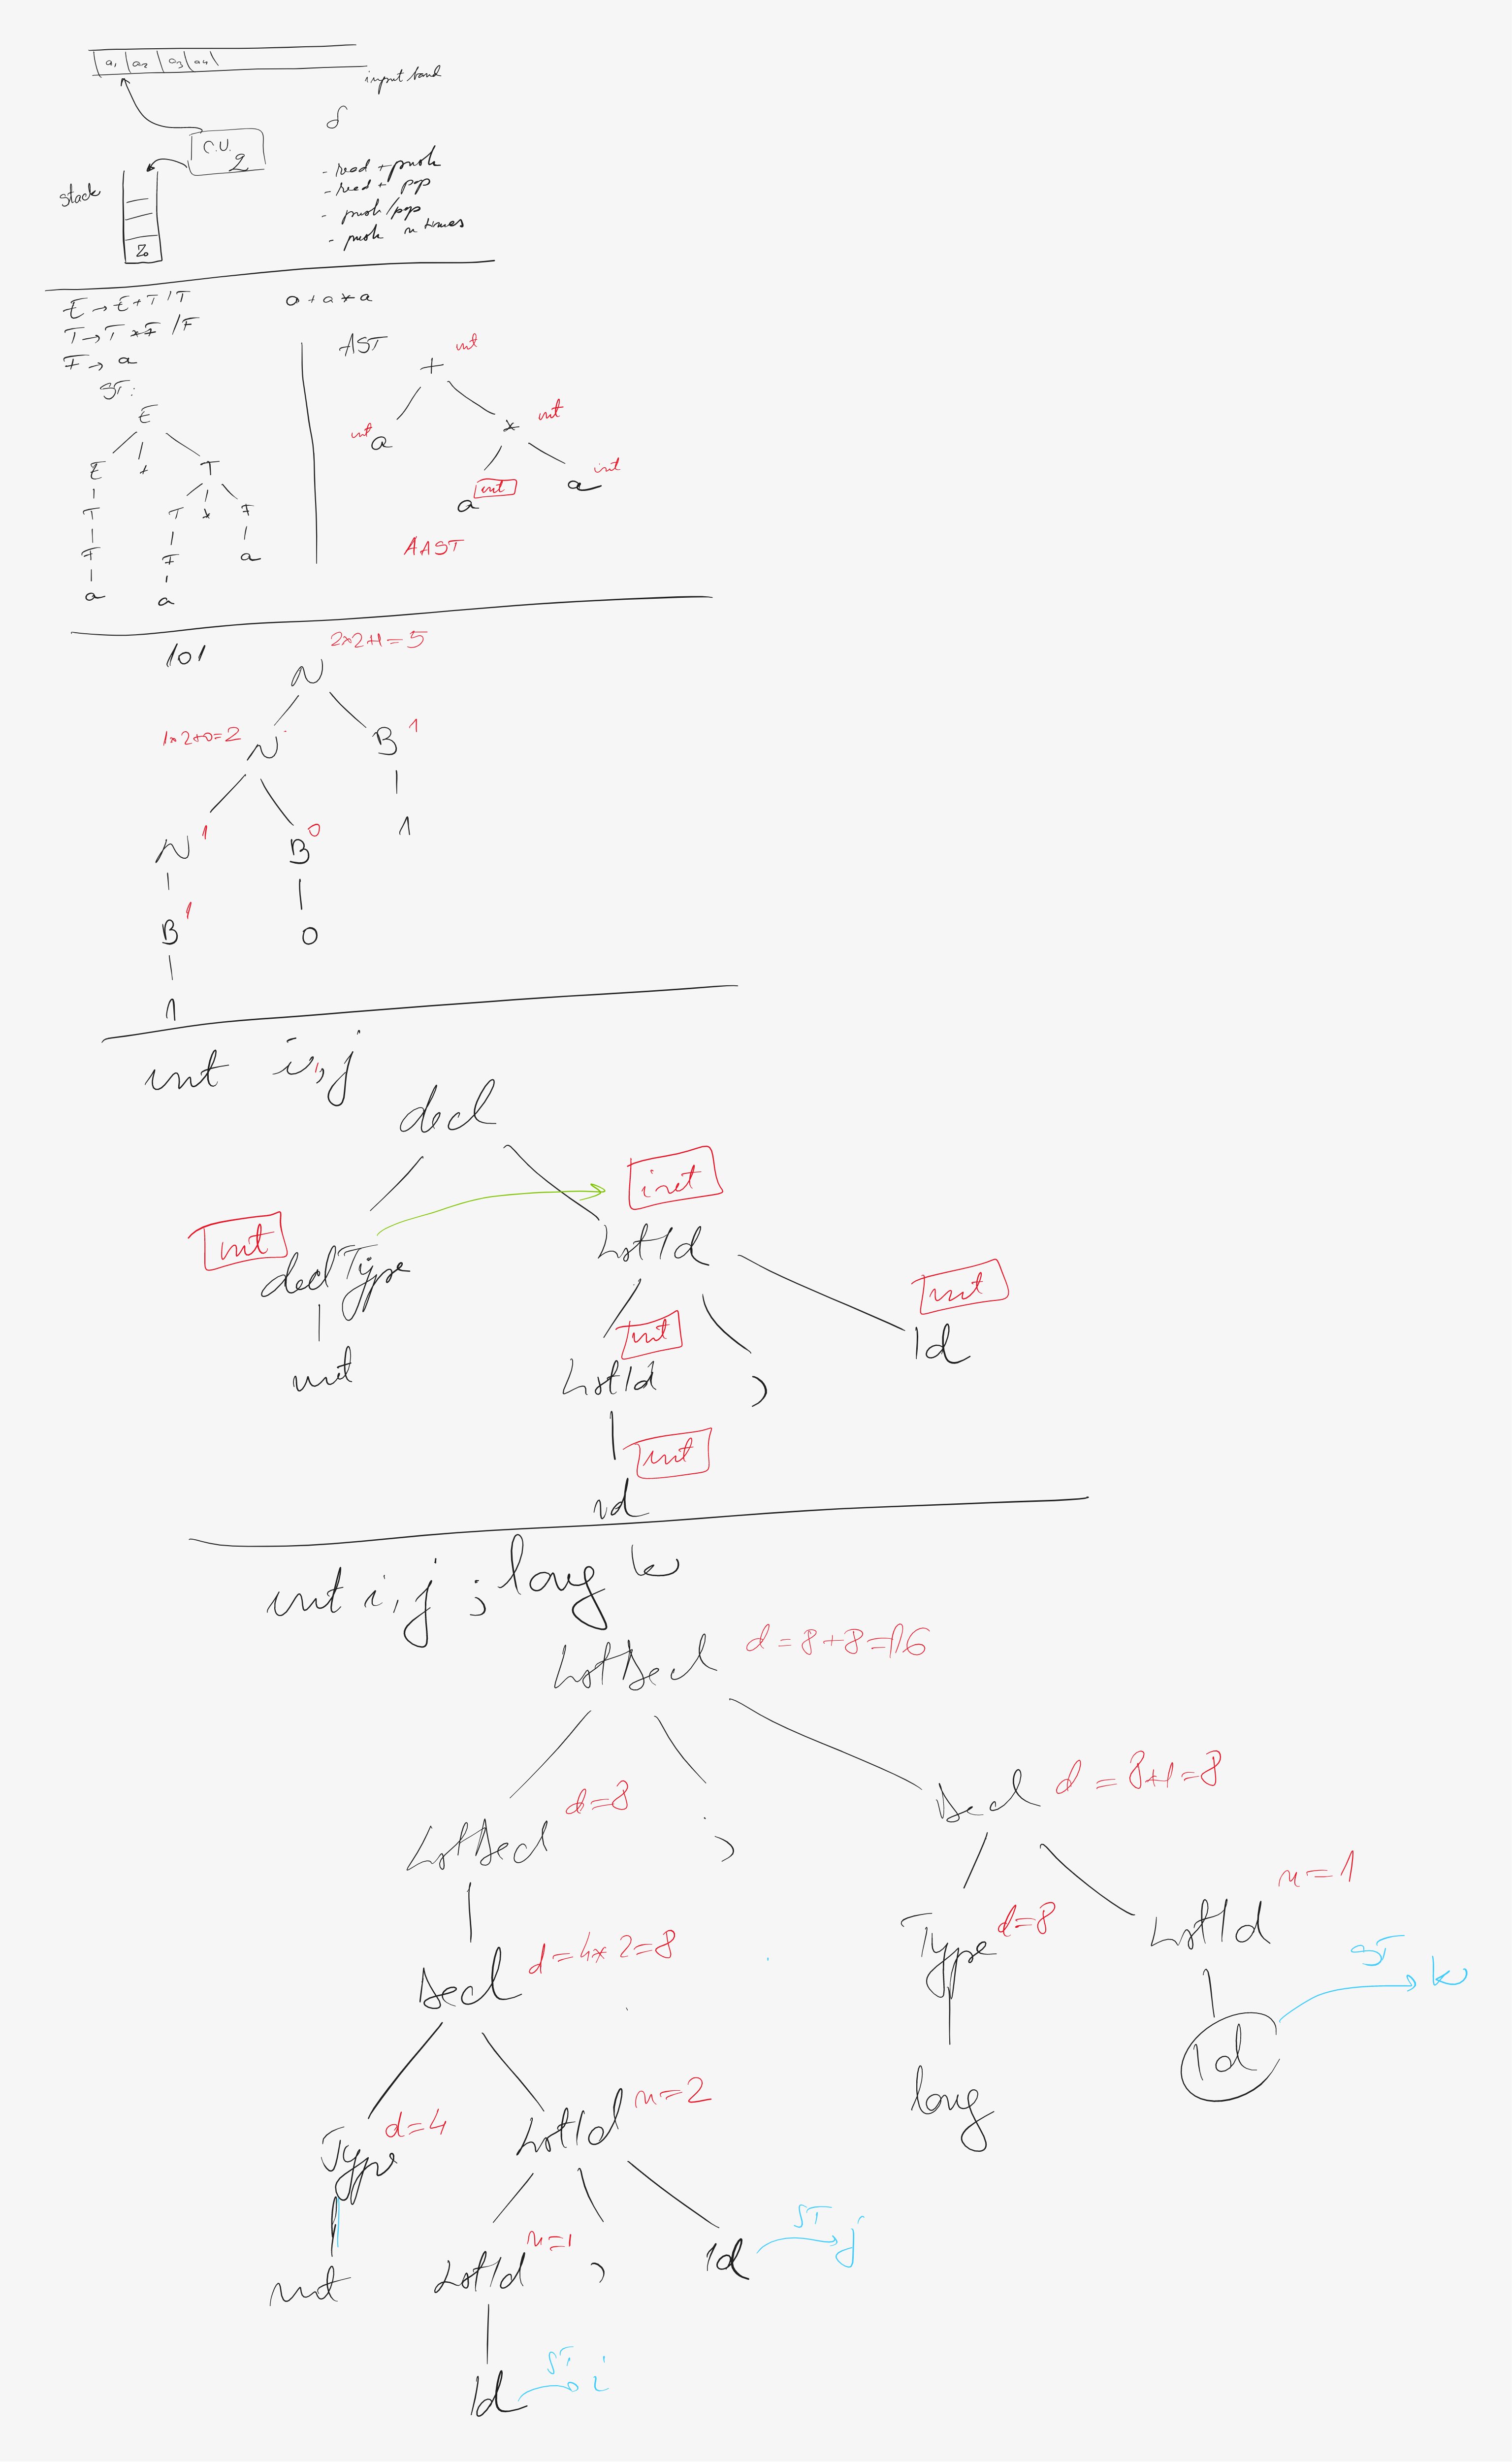 a₁ a₂ a₃ a₄
input band
δ
C.U.
q
stack
Z₀
- read + push
- read + pop
- push/pop
- push n times
E → E + T / T
T → T * F / F
F → a
a + a * a
ST:
E
E + T
T T * F
F F a
a a
AST
+ int
int a * int
a int a int
AAST
101
2*2+1=5
N
1*2+0=2
N B 1
N 1 B 0 1
B 1 0
1
int i, j
decl
int
int
declType
LstId
int
int
int
LstId , Id
int
id
int i, j ; long k
LstDecl d = 8+8=16
LstDecl d=8 ; Decl d = 8*1=8
Decl d=4*2=8
Type d=8 LstId n=1
ST k
Id
long
Type d=4 LstId n=2
int LstId n=1 , Id ST j
Id ST i